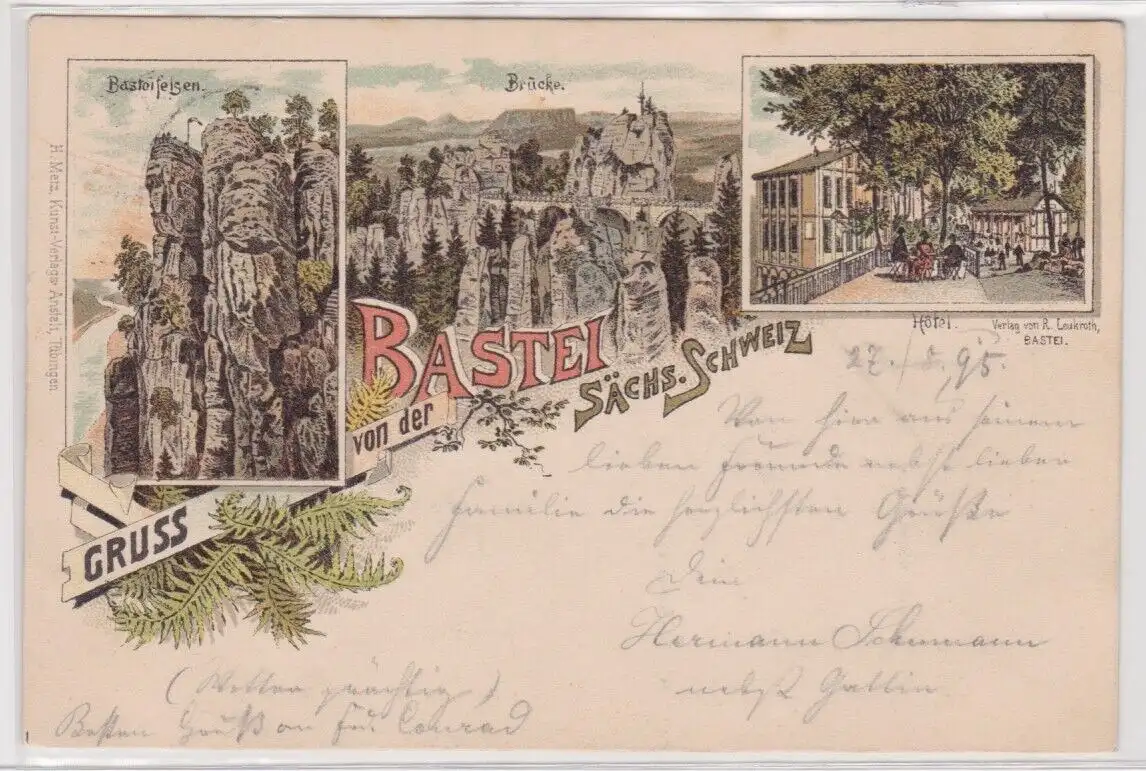 Basteifelsen.
Brücke.
H. Merz, Kunst-Verlags-Anstalt, Tübingen.
Hôtel.
Verlag von R. Leukroth,
BASTEI.
GRUSS
von der
BASTEI
SÄCHS. SCHWEIZ
27./8. 95.
Von hier aus seinem
lieben Freunde nebst lieber
Familie die herzlichsten Grüße
Dein
Hermann Schumann
nebst Gattin
(Wetter prächtig)
Besten Gruß an Frd. Conrad